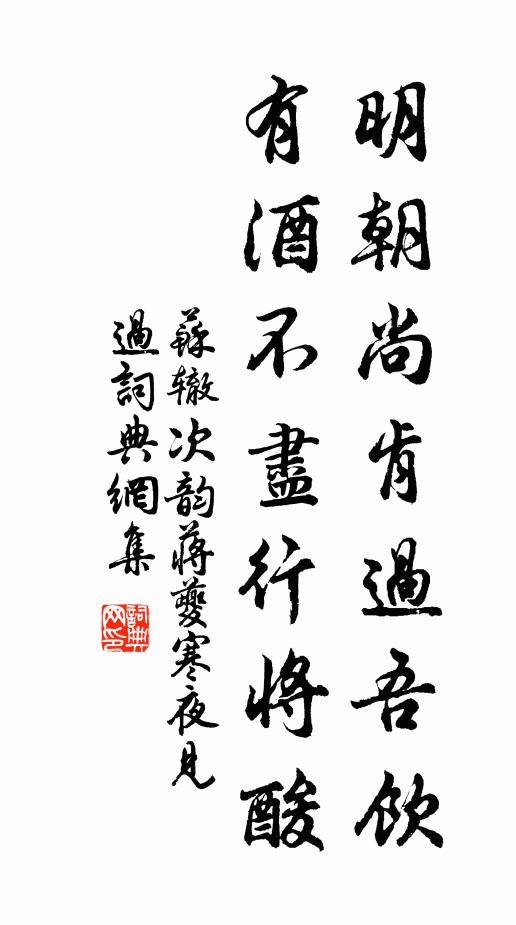 明朝尚肯過吾飲
有酒不盡行將酸
蘇轍次韵蔣夔寒夜見
過詞典網集
詞典網印